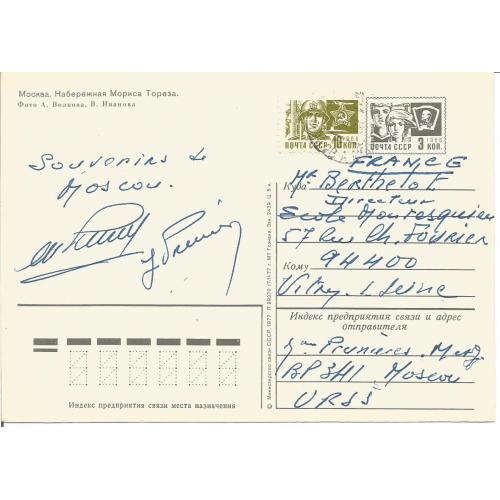 Москва. Набережная Мориса Тореза.
Фото А. Волкова, В. Иванова
Souvenirs de
Moscou.
ПОЧТА СССР 10 КОП.
1966
ПОЧТА СССР 3 КОП.
FRANCE
Куда Mr Berthelot
Directeur
Ecole Montesquieu
57 rue Ch. Fourier
Кому 94400
Vitry s/Seine
Индекс предприятия связи и адрес
отправителя
Prunières
BP 341 Moscou
URSS
Индекс предприятия связи места назначения
© Министерство связи СССР, 1977